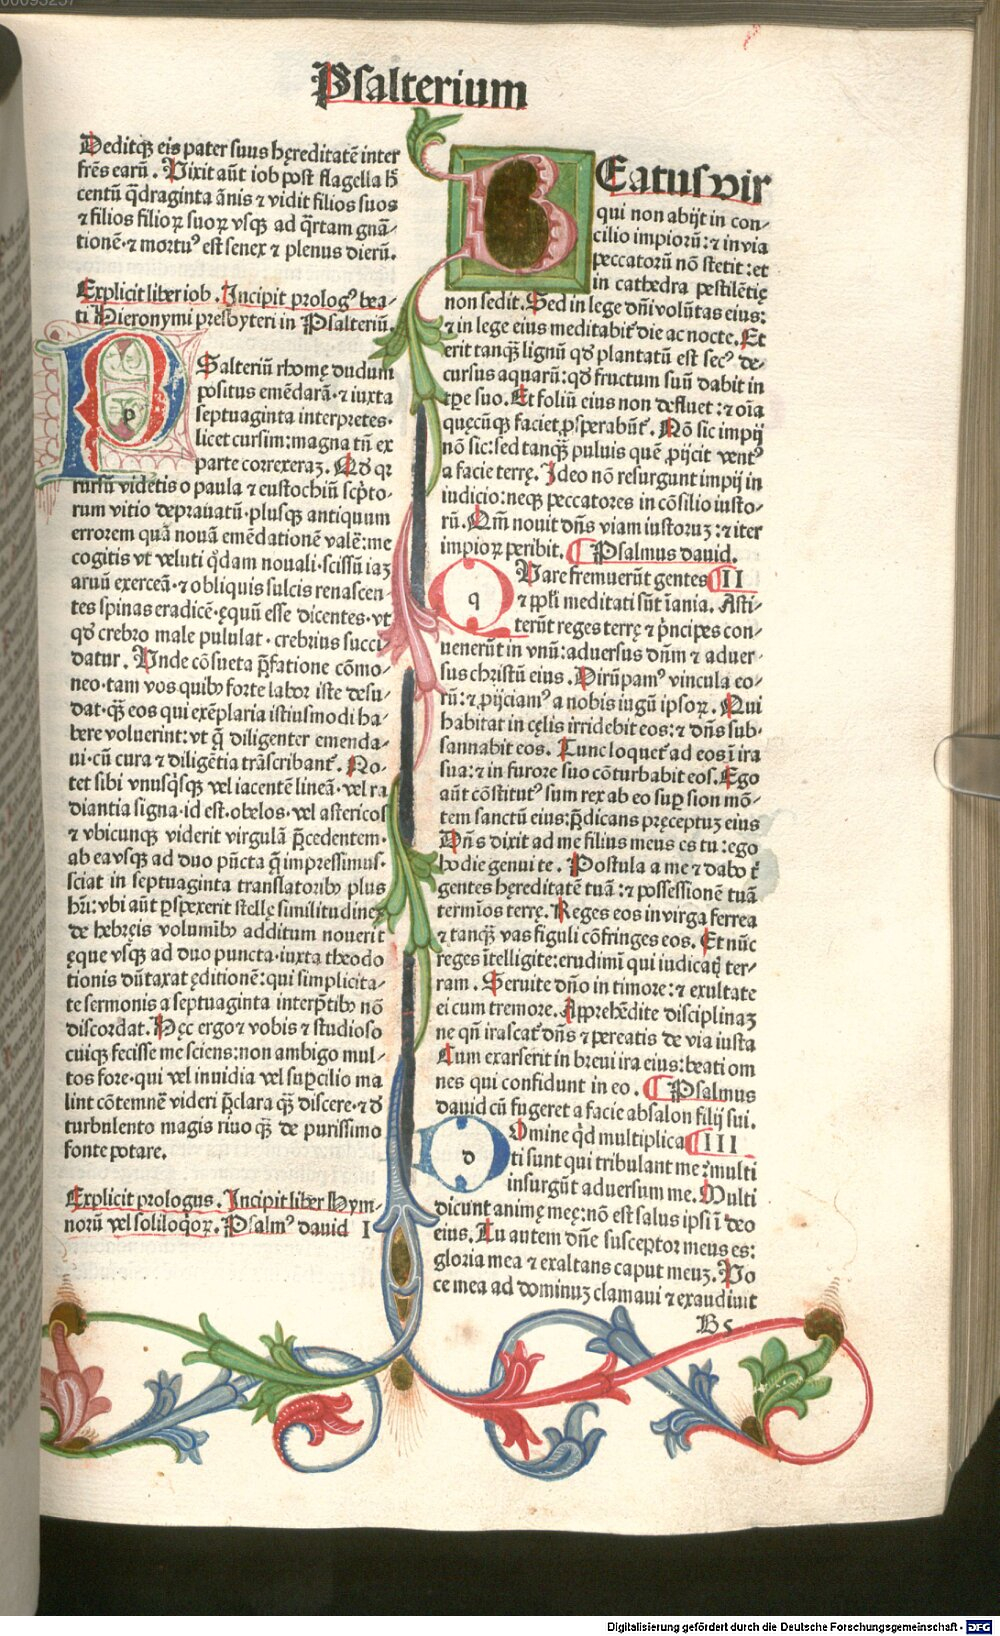 Psalterium
Deditqꝫ eis pater suus hęreditatē inter
frēs earū. Vixit aūt iob post flagella hˀ
centū qͣdraginta ānis ⁊ vidit filios suos
⁊ filios filioꝝ suoꝝ vsqꝫ ad qͣrtam gnā-
tionē·⁊ mortuꝰ est senex ⁊ plenus dierū.
Explicit liber iob. Incipit prologꝰ bea-
ti Hieronymi presbyteri in Psalteriū.
PSalteriū rhomę dudum
positus emēdarā·⁊ iuxta
septuaginta interpretes·
licet cursim:magna tn̄ ex
parte correxeraꝫ. Qd̓ qꝛ
rursū videtis o paula ⁊ eustochiū scp̄to-
rum vitio deprauatū·plusqꝫ antiquum
errorem quā nouā emēdationē valē:me
cogitis vt veluti qͣdam nouali·scissū iaꝫ
aruū exerceā·⁊ obliquis sulcis renascen-
tes spinas eradicē·ęquū esse dicentes·vt
qd̓ crebro male pululat·crebrius succi
datur. Vnde cōsueta p̄fatione cōmo-
neo·tam vos quibꝰ forte labor iste desu-
dat·qꝫ̄ eos qui exēplaria istiusmodi ha-
bere voluerint:vt q̄ diligenter emenda-
ui·cū cura ⁊ diligētia trāscribant̄. No-
tet sibi vnusqͥsqꝫ vel iacentē lineā·vel ra
diantia signa·id est·obelos·vel astericos
⁊ vbicunqꝫ viderit virgulā p̄cedentem·
ab ea vsqꝫ ad duo pūcta q̄ impressimus·
sciat in septuaginta translatoribꝰ plus
hr̄i:vbi aūt ꝑspexerit stellę similitudineꝫ
de hebręis volumībꝰ additum nouerit
ęque vsqꝫ ad duo puncta·iuxta theodo
tionis dūtaxat ęditionē:qui simplicita-
te sermonis a septuaginta interp̄tibꝰ nō
discordat. Hęc ergo ⁊ vobis ⁊ studioso
cuiqꝫ fecisse me sciens:non ambigo mul-
tos fore·qui vel inuidia vel suꝑcilio ma
lint cōtemnē videri p̄clara qꝫ̄ discere·⁊ d̓
turbulento magis riuo qꝫ̄ de purissimo
fonte potare.
Explicit prologus. Incipit liber Hym-
norū vel soliloqͦoꝝ. Psalmꝰ dauid I
BEatus vir
qui non abijt in con-
cilio impiorū:⁊ in via
peccatorū nō stetit:et
in cathedra pestilētię
non sedit. Sed in lege dn̄i volūtas eius:
⁊ in lege eius meditabit̄ die ac nocte. Et
erit tanqꝫ̄ lignū qd̓ plantatū est secꝰ de-
cursus aquarū:qd̓ fructum suū dabit in
tꝑe suo. Et foliū eius non defluet:⁊ oīa
quęcūqꝫ faciet ꝓsperabūt̄. Nō sic impij
nō sic:sed tanqꝫ̄ puluis quē ꝓijcit ventꝰ
a facie terrę. Ideo nō resurgunt impij in
iudicio:neqꝫ peccatores in cōsilio iusto-
rū. Qm̄ nouit dn̄s viam iustoruꝫ:⁊ iter
impioꝝ peribit. Psalmus dauid.
qVare fremuerūt gentes II
⁊ ppl̓i meditati sūt īania. Asti-
terūt reges terrę ⁊ pͥncipes con-
uenerūt in vnū:aduersus dn̄m ⁊ aduer-
sus christū eius. Dirūpamꝰ vincula eo-
rū:⁊ ꝓijciamꝰ a nobis iugū ipsoꝝ. Qui
habitat in cęlis irridebit eos:⁊ dn̄s sub-
sannabit eos. Tunc loquet̄ ad eos ī ira
sua:⁊ in furore suo cōturbabit eos. Ego
aūt cōstitutꝰ sum rex ab eo suꝑ sion mō-
tem sanctū eius:p̄dicans pręceptuꝫ eius
Dn̄s dixit ad me filius meus es tu:ego
hodie genui te. Postula a me ⁊ dabo t̓
gentes hęreditatē tuā:⁊ possessionē tuā
termīos terrę. Reges eos in virga ferrea
⁊ tanqꝫ̄ vas figuli cōfringes eos. Et nūc
reges ītelligite:erudimī qui iudicatꝭ ter-
ram. Seruite dn̄o in timore:⁊ exultate
ei cum tremore. Apprehēdite disciplinaꝫ
ne qn̄ irascat̄ dn̄s ⁊ pereatis de via iusta
Cum exarserit in breui ira eius:beati om
nes qui confidunt in eo. Psalmus
dauid cū fugeret a facie absalon filij sui.
dOmine qͥd multiplica III
ti sunt qui tribulant me ?multi
insurgūt aduersum me. Multi
dicunt animę meę:nō est salus ipsi ī deo
eius. Tu autem dn̄e susceptor meus es:
gloria mea ⁊ exaltans caput meuꝫ. Vo
ce mea ad dominuꝫ clamaui ⁊ exaudiuit
Digitalisierung gefördert durch die Deutsche Forschungsgemeinschaft - DFG